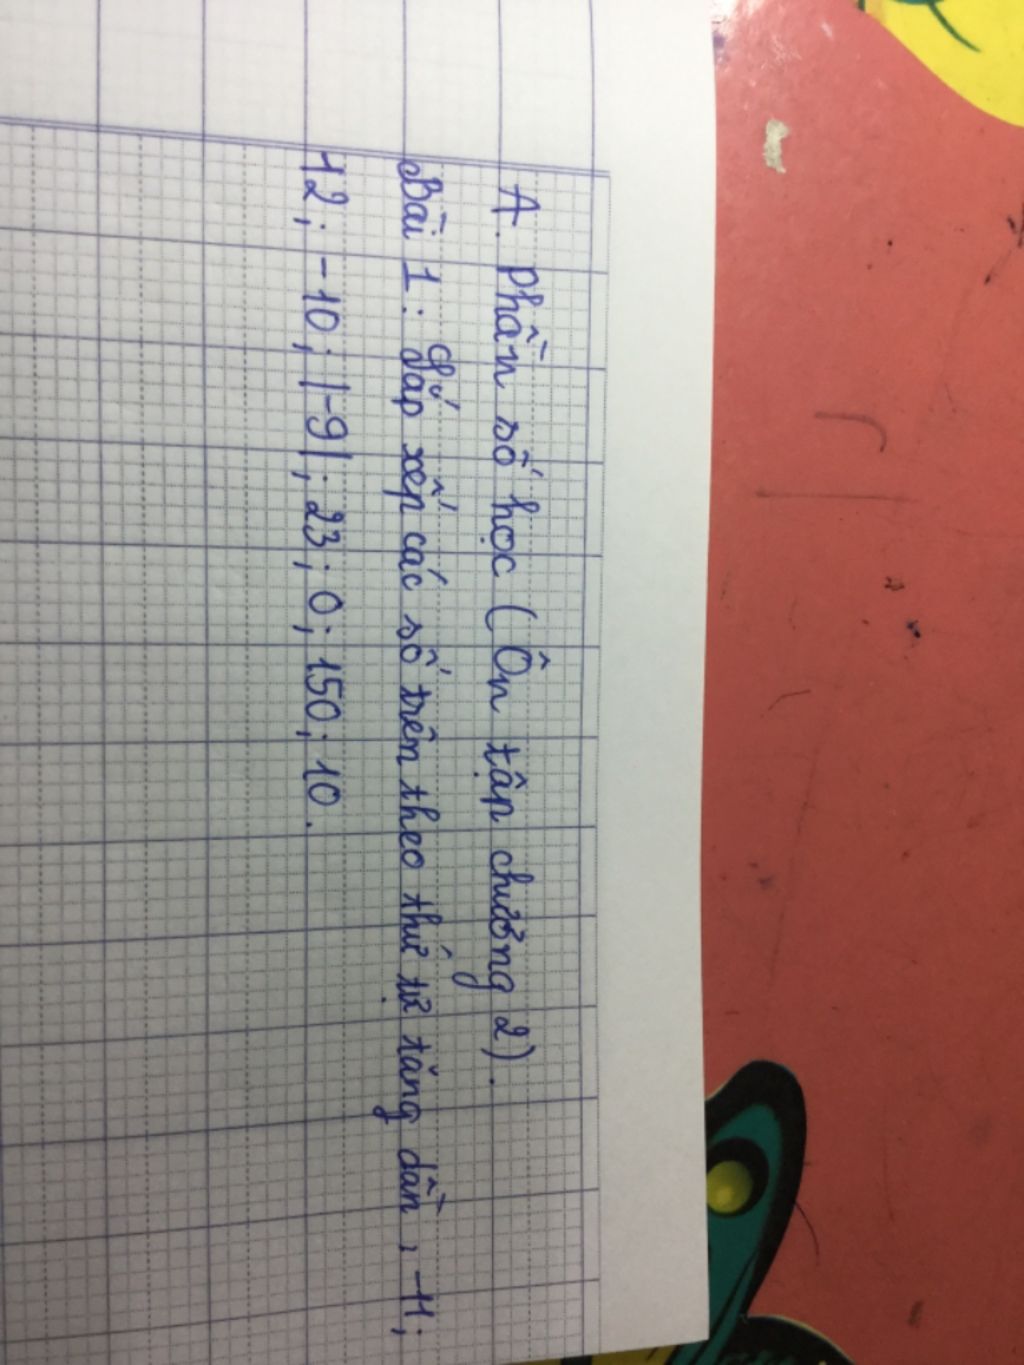 A. Phần số học (Ôn tập chương 2).
Bài 1: Sắp xếp các số trên theo thứ tự tăng dần, -11;
12; -10; |-9|; 23; 0; 150; 10.